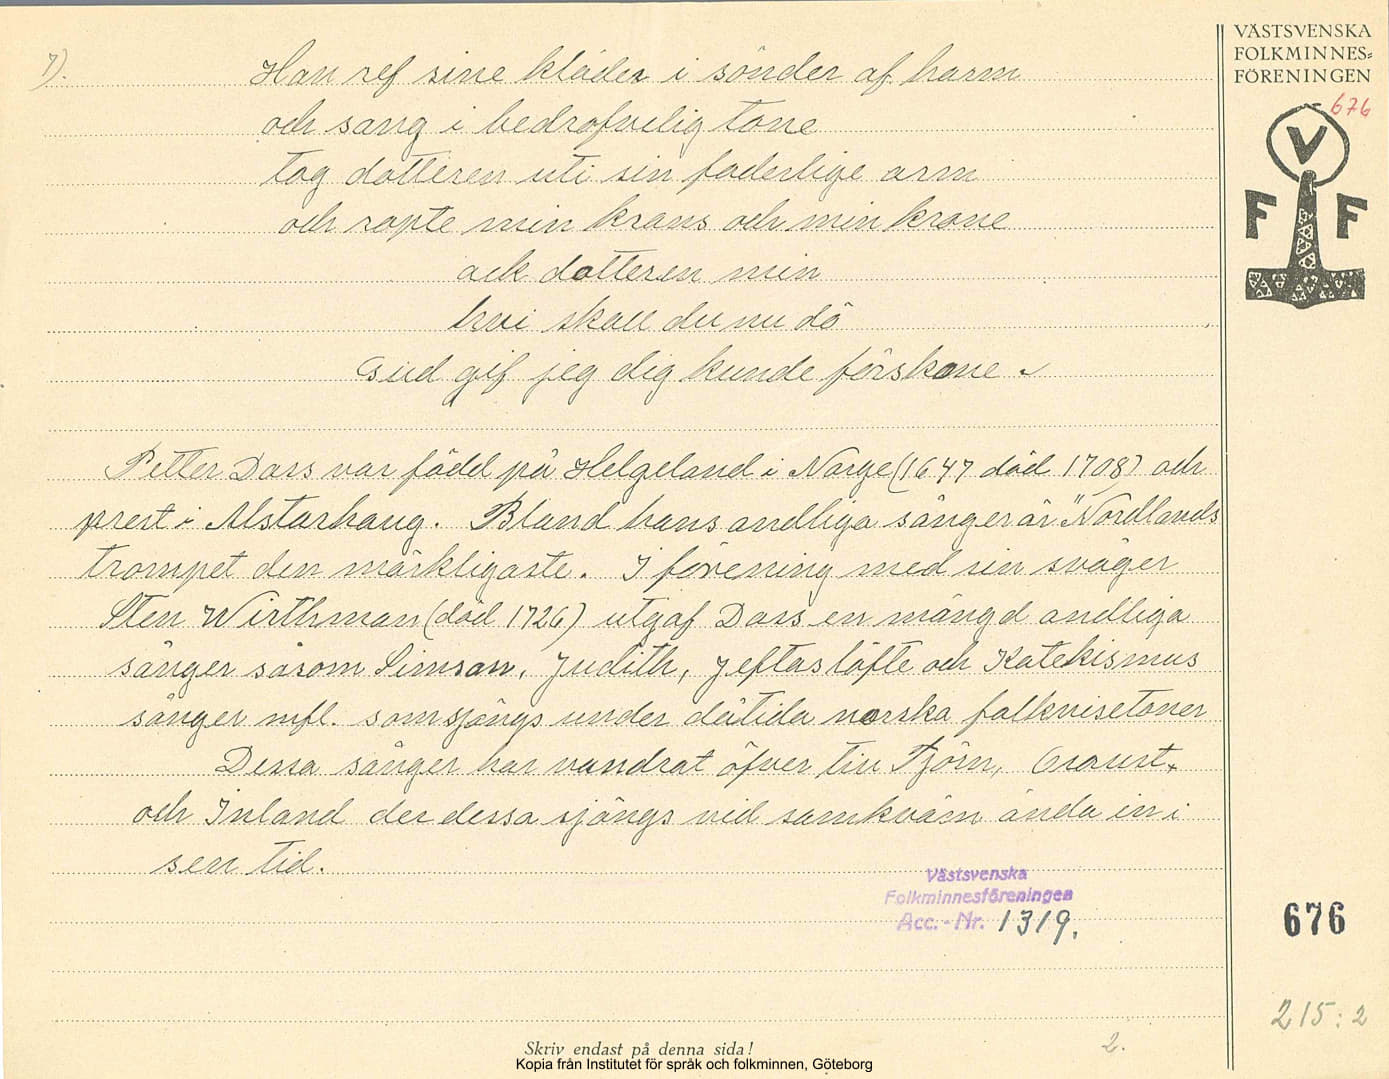 VÄSTSVENSKA
FOLKMINNES=
FÖRENINGEN
676
V
F F
7).
Han ref sine kläder i sönder af harm
och sang i bedrøfvelig tone
tog dotteren uti sin faderlige arm
och ropte min krans och min krone
ack dotteren min
hvi skall du nu dö
Gud gif jeg dig kunde förskone
Petter Dass var född på Helgeland i Norge (1647 död 1708) och
prest i Alstarhaug. Bland hans andliga sånger är "Nordlands
trompet den märkligaste. I förening med sin svåger
Sten Wirthman (död 1726) utgaf Dass en mängd andliga
sånger såsom Simson, Judith, Jeftas löfte och Katekismus
sånger mfl. som sjöngs under dåtida norska folkvisetoner
Dessa sånger har vandrat öfver till Tjörn, Oroust
och Inland der dessa sjöngs vid samkväm ända in i
sen tid.
Västsvenska
Folkminnesföreningen
Acc. - Nr. 1319.
676
215:2
2.
Skriv endast på denna sida!
Kopia från Institutet för språk och folkminnen, Göteborg